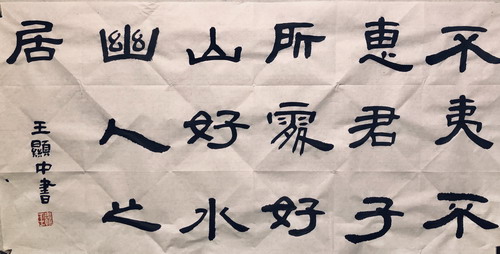 不夷不
惠君子
所好
山好水
幽人之
居
王顯中書